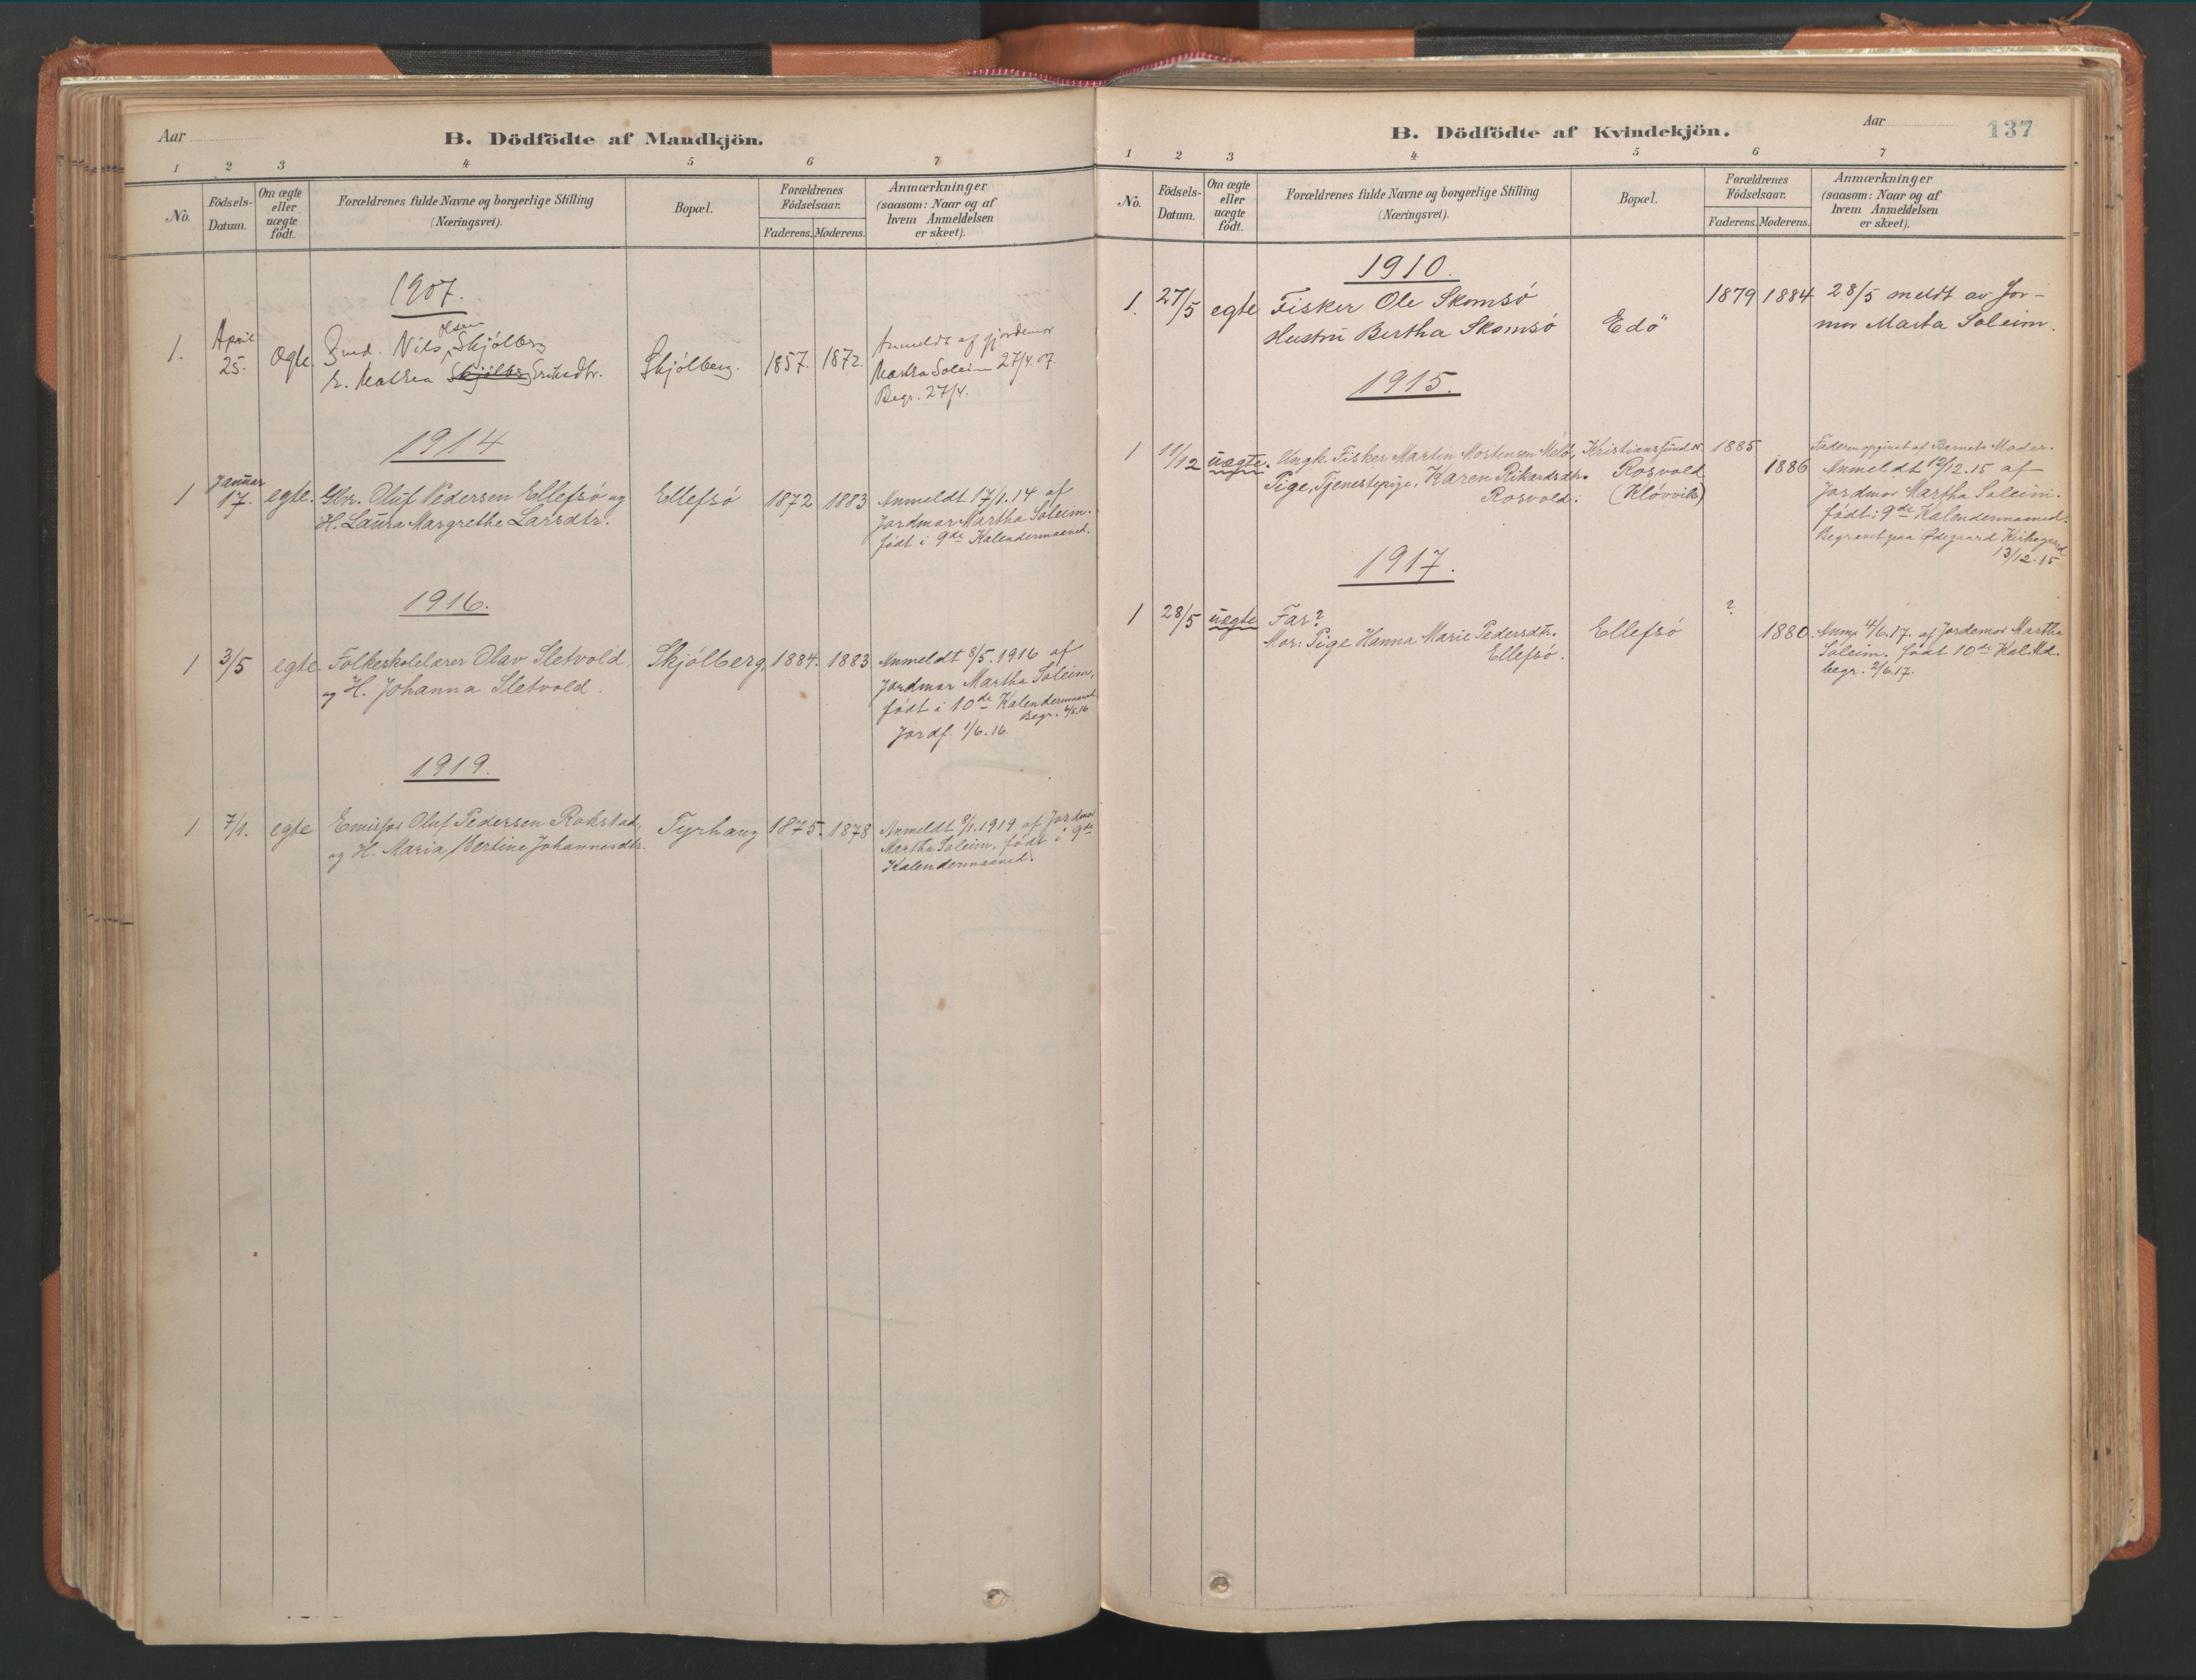 Aar
B. Dödfödte af Mandkjön.
1 2 3 4 5 6 7
No.
Födsels-
Datum.
Om ægte
eller
uægte
födt.
Forældrenes fulde Navne og borgerlige Stilling
(Næringsvei).
Bopæl.
Forældrenes
Födselsaar.
Faderens. Moderens.
Anmærkninger
(saasom: Naar og af
hvem Anmeldelsen
er skeet).
1907.
1. April 25. Ægte. Nils Olsen Skjölberg
Eriksdtr.
Skjölberg. 1857. 1872.
Anmeldt af gjordemor
Martha Soleim 27/4.07.
Begr. 27/4.
1914
1 Januar 17. egte. Gbr. Oluf Pedersen Ellefsö og
H. Laura Margrethe Larsdtr.
Ellefsö 1872 1883
Anmeldt 17/1.14 af
Jordmor Martha Soleim.
født i 9de Kalendermaaned.
1916.
1 3/5 egte Folkeskolelærer Olav Sletvold
og H. Johanna Sletvold.
Skjölberg 1884. 1883
Anmeldt 8/5.1916 af
Jordmor Martha Soleim,
født i 10de Kalendermaaned
Begr. 6/5.16
Jordf. 1/6.16.
1919.
1 7/1. egte Emisær Oluf Pedersen Rokstad,
og H. Maria Bertine Johannesdtr.
Tyrhaug 1875. 1878
Anmeldt 8/1.1919 af Jordmor
Martha Soleim, født i 9de
Kalendermaaned.
B. Dödfödte af Kvindekjön.
Aar
137
1 2 3 4 5 6 7
No.
Födsels-
Datum.
Om ægte
eller
uægte
födt.
Forældrenes fulde Navne og borgerlige Stilling
(Næringsvei).
Bopæl.
Forældrenes
Födselsaar.
Faderens. Moderens.
Anmærkninger
(saasom: Naar og af
hvem Anmeldelsen
er skeet).
1910.
1. 27/5 egte Fisker Ole Skomsö
Hustru Bertha Skomsö
Edö 1879 1884
28/5 meldt av Jor-
mor Marta Soleim.
1915.
1 11/12 uægte. Ungk. Fisker Martin Mortensen Melö,
Pige, Tjenestepige, Karen Rikardsdtr.
Rosvold.
Kristiansund N.
Rosvold
(Klövvik)
1885
1886
Faderen opgivet af Barnets Moder.
Anmeldt 12/12.15 af
Jordmor Martha Soleim.
født i 9de Kalendermaaned.
Begravet paa Ødegaard Kirkegaard
13/12.15
1917.
1 28/5 uægte Far?
Mor: Pige Hanna Marie Pedersdtr.
Ellefsö.
Ellefsö ? 1880.
Anm. 4/6.17. af Jordemor Martha
Soleim. født 10de Kal.Md.
begr. 2/6.17.